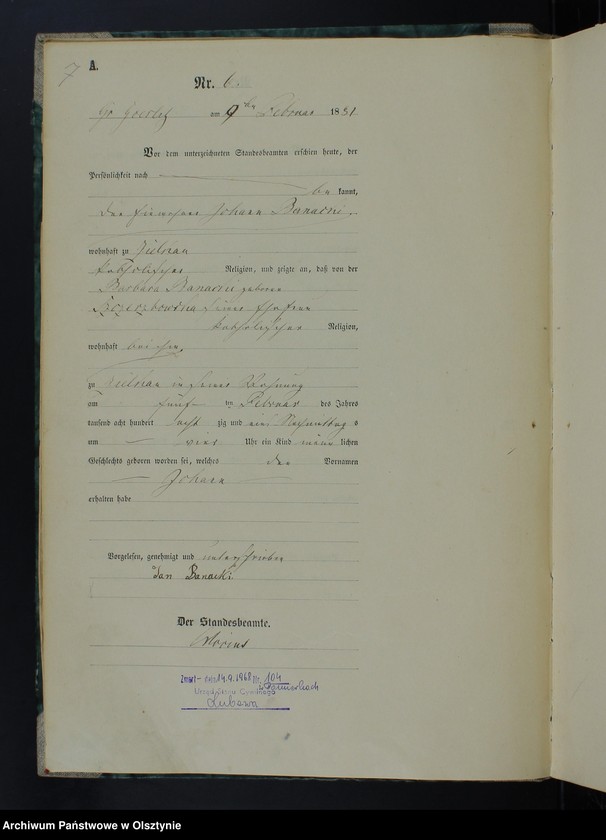 7
A.
Nr. 6.
am 9ten Februar 1881
Vor dem unterzeichneten Standesbeamten erschien heute, der
Persönlichkeit nach
be kannt,
der Einwohner Johann Banacki
wohnhaft zu
katholischer Religion, und zeigte an, daß von der
Barbara Banacki geborne
seiner Ehefrau
katholischer Religion,
wohnhaft bei ihm,
zu in seiner Wohnung
am fünf ten Februar des Jahres
tausend acht hundert acht zig und ein Nachmittag s
um vier Uhr ein Kind männ lichen
Geschlechts geboren worden sei, welches den Vornamen
Johann
erhalten habe
Vorgelesen, genehmigt und unterschrieben
Jan Banacki
Der Standesbeamte.
Zmarł - dnia 14.9.1968 Nr. 104
Urząd Stanu Cywilnego
Lubawa
Archiwum Państwowe w Olsztynie